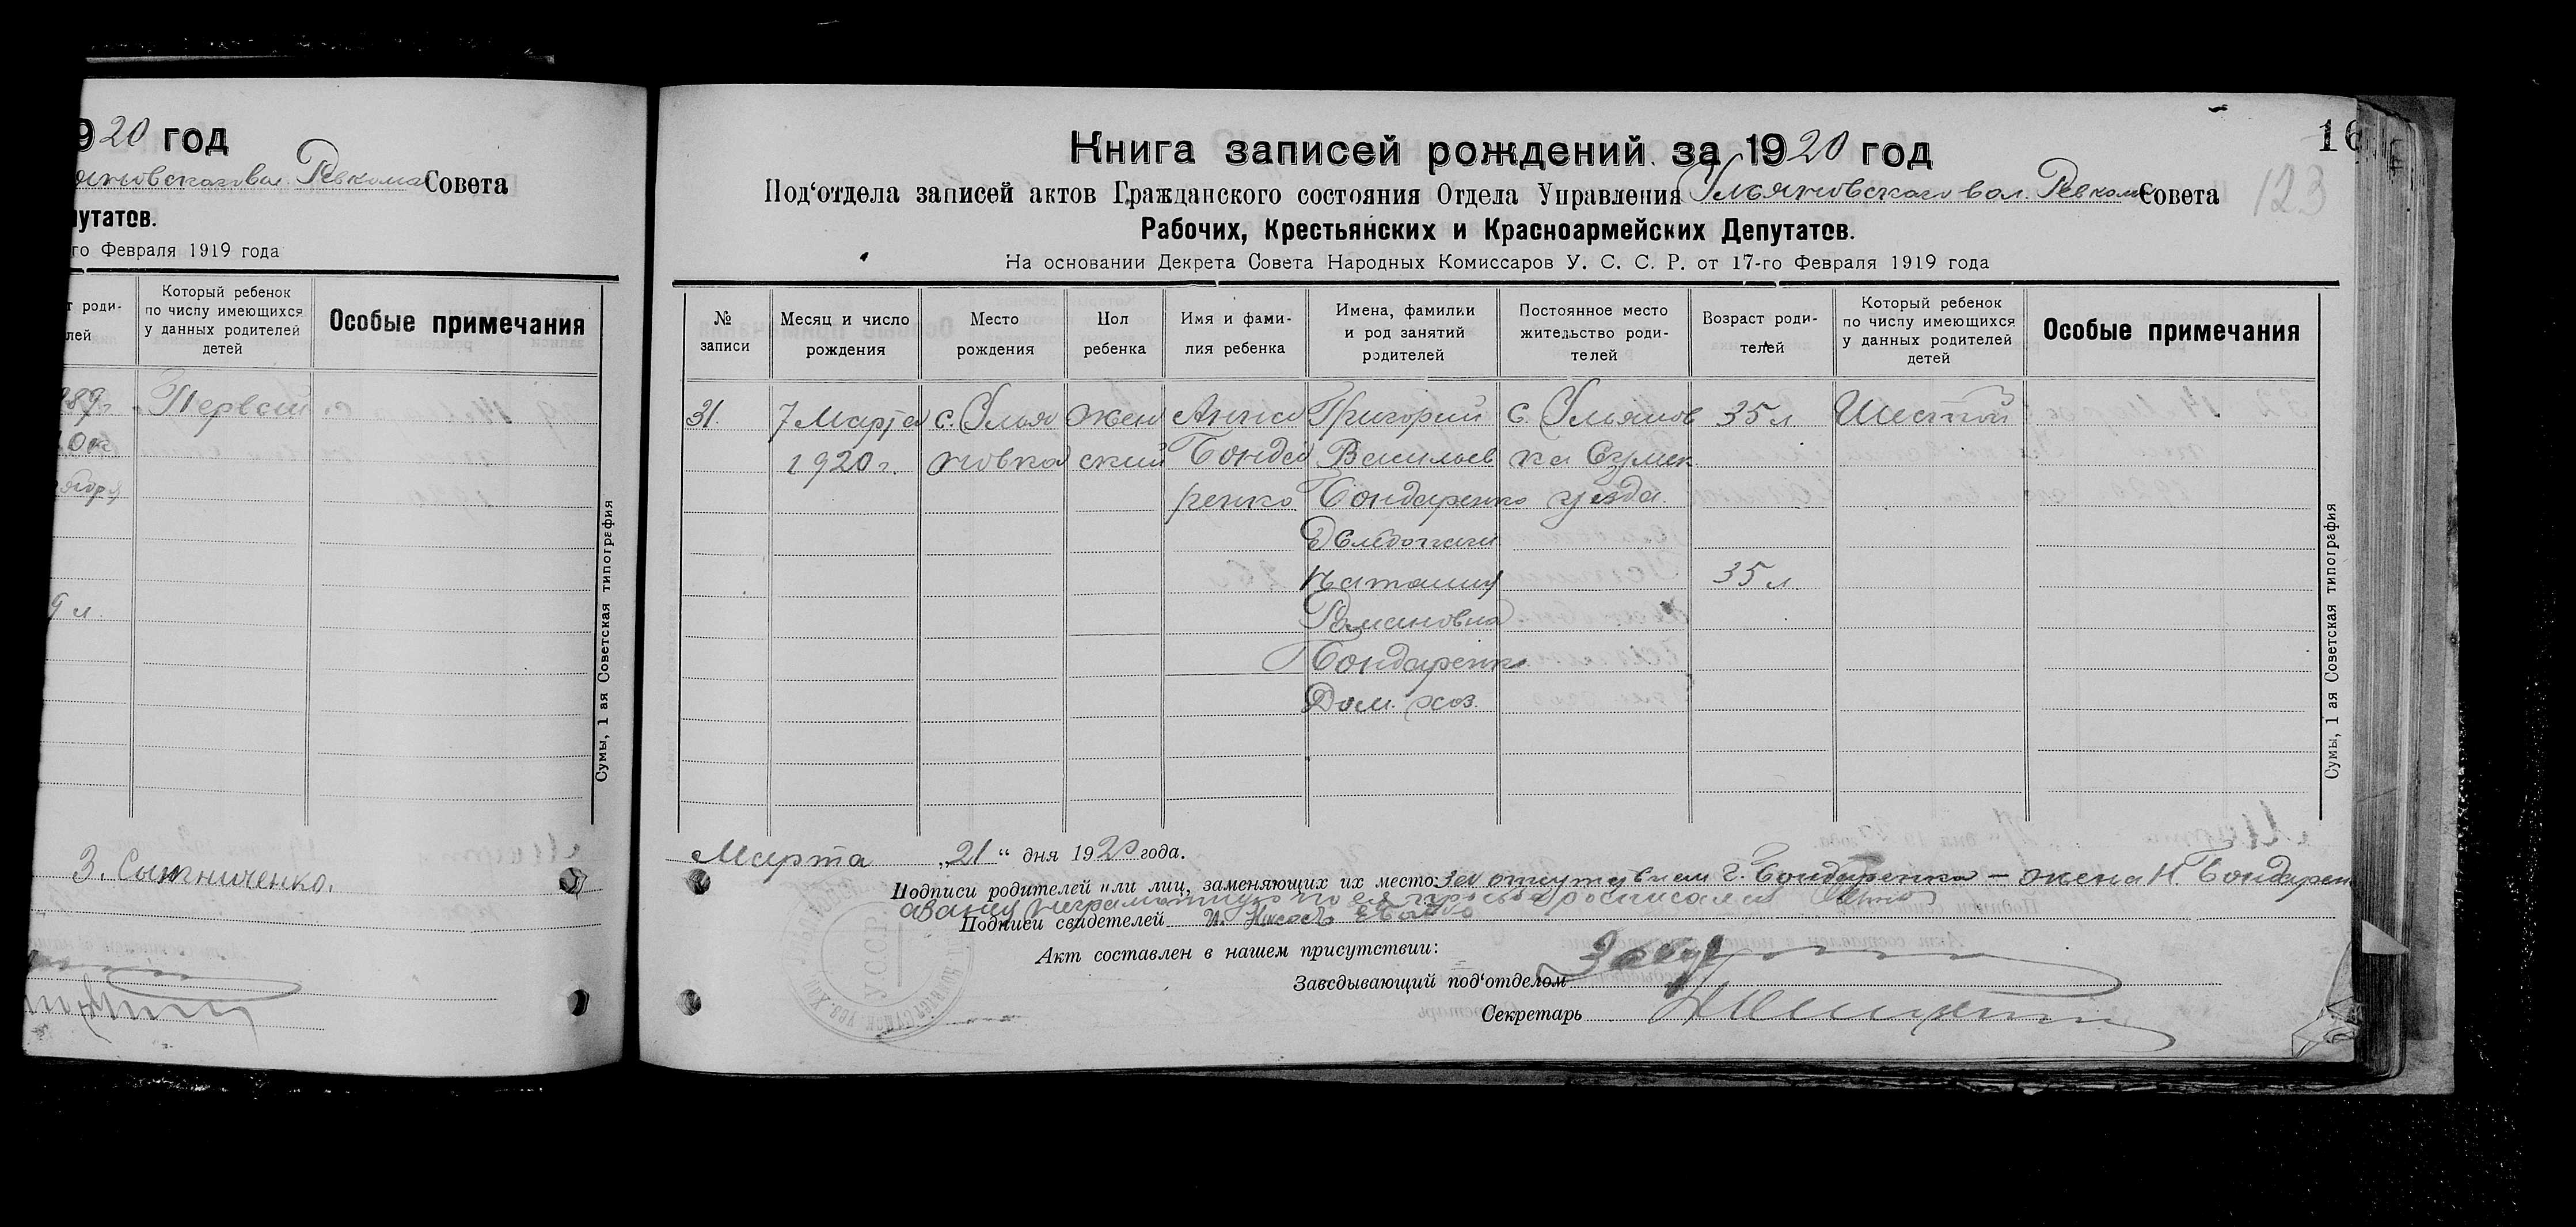 920 год
Ревкома Совета
путатов.
го Февраля 1919 года
т роди-
лей
Который ребенок
по числу имеющихся
у данных родителей
детей
Особые примечания
Первый
9 л.
Сумы, 1 ая Советская типография
З.
16
123
Книга записей рождений за 1920 год
Под'отдела записей актов Гражданского состояния Отдела Управления Ульяновского вол. Ревкома Совета
Рабочих, Крестьянских и Красноармейских Депутатов.
На основании Декрета Совета Народных Комиссаров У. С. С. Р. от 17-го Февраля 1919 года
№
записи
Месяц и число
рождения
Место
рождения
Пол
ребенка
Имя и фами-
лия ребенка
Имена, фамилии
и род занятий
родителей
Постоянное место
жительство роди-
телей
Возраст роди-
телей
Который ребенок
по числу имеющихся
у данных родителей
детей
Особые примечания
31. 7 Марта с. Улья Жен Анна Григорий с. Ульянов 35 л. Шестой
1920 г. новка ский Бонда Васильев ка Сумск
ренко Бондаренко уезда.
Хлебопаш
Наталия 35 л.
Романовна
Бондаренко
Дом. хоз.
Сумы, 1 ая Советская типография
Марта „21“ дня 1920 года.
Подписи родителей или лиц, заменяющих их место: за отсутствием Г. Бондаренка — жена Н. Бондарен
неграмотную по ея просьбе росписался
Подписи свидетелей
Акт составлен в нашем присутствии:
Заведывающий под'отделом
Секретарь
У.С.С.Р.